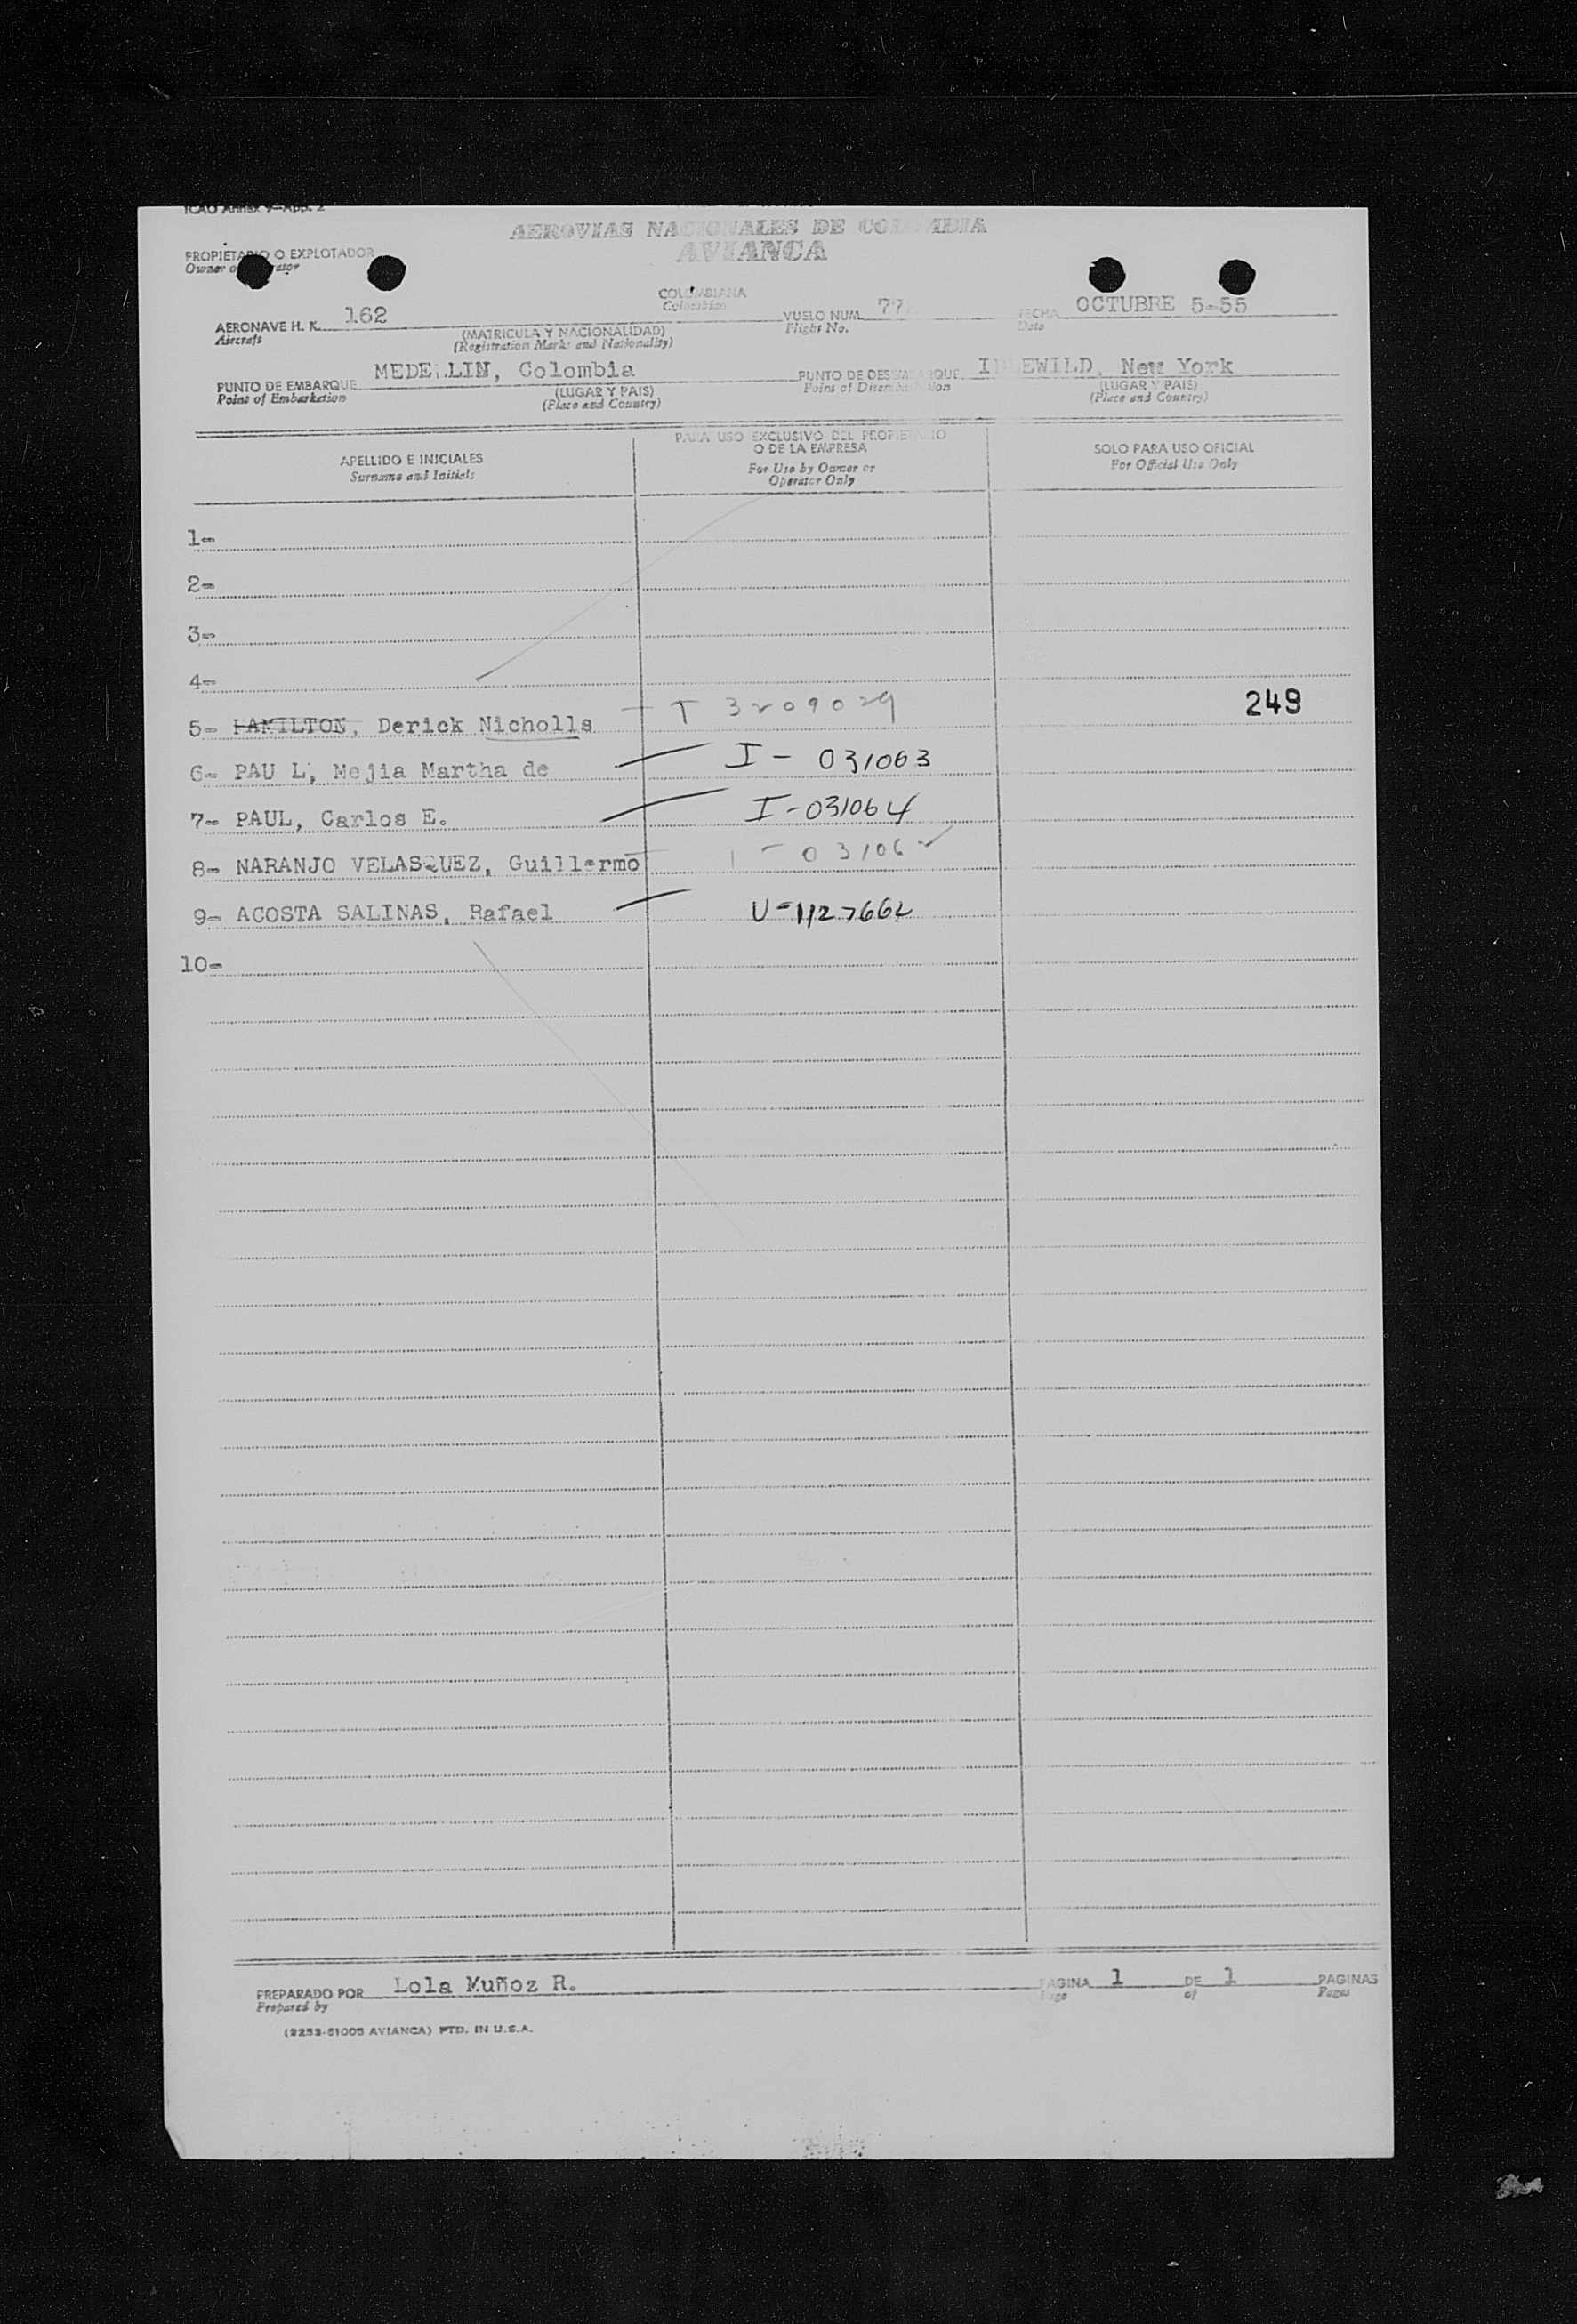 ICAO Annex 9-App. 2
AEROVIAS NACIONALES DE COLOMBIA
AVIANCA
PROPIETARIO O EXPLOTADOR
Owner or Operator
COLOMBIANA
Colombian
AERONAVE H. K. 162
Aircraft
(MATRICULA Y NACIONALIDAD)
(Registration Marks and Nationality)
VUELO NUM. 77
Flight No.
FECHA OCTUBRE 5-55
Date
PUNTO DE EMBARQUE MEDELLIN, Colombia
Point of Embarkation
(LUGAR Y PAIS)
(Place and Country)
PUNTO DE DESEMBARQUE IDLEWILD, New York
Point of Disembarkation
(LUGAR Y PAIS)
(Place and Country)
APELLIDO E INICIALES
Surname and Initials
PARA USO EXCLUSIVO DEL PROPIETARIO
O DE LA EMPRESA
For Use by Owner or
Operator Only
SOLO PARA USO OFICIAL
For Official Use Only
1-
2-
3-
4-
5- HAMILTON, Derick Nicholls T 3209029 249
6- PAU L, Mejia Martha de I - 031063
7- PAUL, Carlos E. I-031064
8- NARANJO VELASQUEZ, Guillermo
9- ACOSTA SALINAS, Rafael U-1127662
10-
PREPARADO POR Lola Muñoz R.
Prepared by
PAGINA 1 DE 1 PAGINAS
Page of Pages
(2253-51005 AVIANCA) PTD. IN U.S.A.